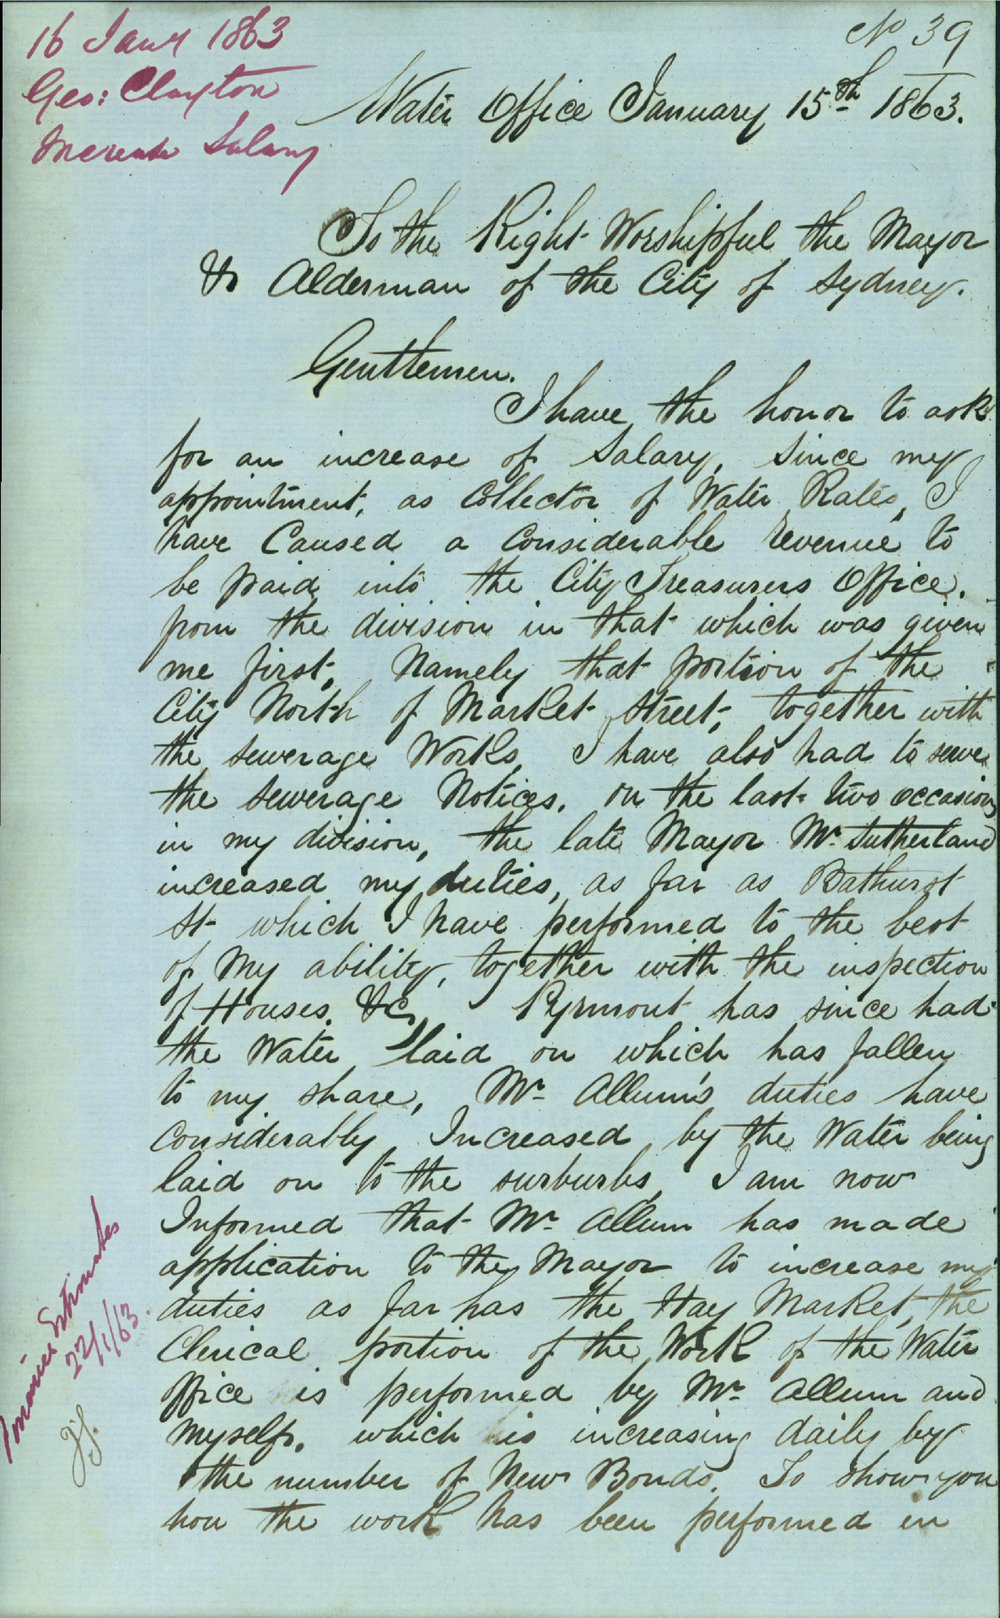 16 Jany 1863
Geo: Clayton
Increase Salary
No 39
Water Office January 15th 1863.
To the Right Worshipful the Mayor
& Alderman of the City of Sydney.
Gentlemen.
I have the honor to ask
for an increase of Salary, Since my
appointment, as Collector of Water Rates, I
have Caused a Considerable revenue to
be paid into the City Treasurers Office.
from the division in that which was given
me first, Namely that portion of the
City North of Market Street, together with
the Sewerage Works, I have also had to serve
the Sewerage Notices. on the last two occasions
in my division, the late Mayor Mr Sutherland
increased my duties, as far as Bathurst
St which I have performed to the best
of My ability, together with the inspection
of Houses &c, Pyrmont has since had
the Water laid on which has fallen
to my share, Mr Allum's duties have
Considerably Increased by the Water being
laid on to the surburbs, I am now
Informed that Mr Allum has made
application to the Mayor to increase my
duties as far has the Hay Market, the
Clerical portion of the Work of the Water
office is performed by Mr Allum and
Myself. which is increasing daily by
the number of New Bonds. To show you
how the work has been performed in
Estimates
22/1/63.